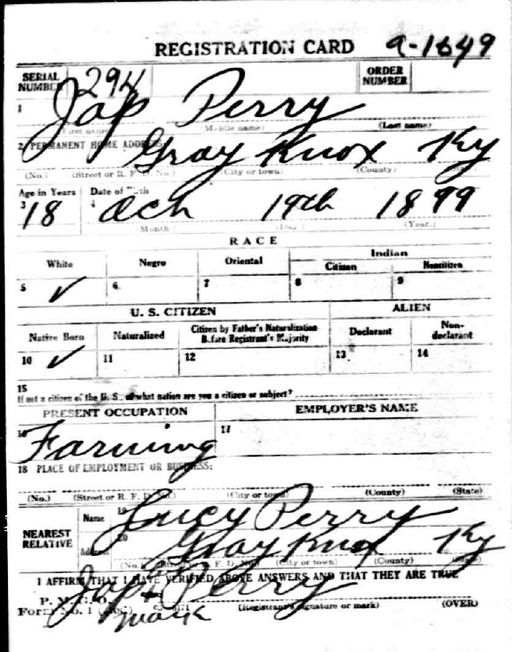 REGISTRATION CARD a-1649
SERIAL NUMBER 294 ORDER NUMBER
1 Jap Perry
(First name) (Middle name) (Last name)
2 PERMANENT HOME ADDRESS:
Gray Knox Ky
(No.) (Street or R. F. D. No.) (City or town) (County) (State)
Age in Years Date of Birth
3 18 4 Och 19th 1899
(Month) (Day) (Year)
RACE
White Negro Oriental Indian
Citizen Noncitizen
5 ✓ 6 7 8 9
U. S. CITIZEN ALIEN
Native Born Naturalized Citizen by Father's Naturalization Before Registrant's Majority Declarant Non-declarant
10 ✓ 11 12 13 14
15
If not a citizen of the U. S., of what nation are you a citizen or subject?
PRESENT OCCUPATION EMPLOYER'S NAME
16 Farming 17
18 PLACE OF EMPLOYMENT OR BUSINESS:
(No.) (Street or R. F. D. No.) (City or town) (County) (State)
NEAREST RELATIVE Name 19 Lucy Perry
Address 20 Gray Knox Ky
(No.) (Street or R. F. D. No.) (City or town) (County) (State)
I AFFIRM THAT I HAVE VERIFIED ABOVE ANSWERS AND THAT THEY ARE TRUE
P. M. G. O.
Form No. 1 Jap + Perry
mark (Registrant's signature or mark) (OVER)